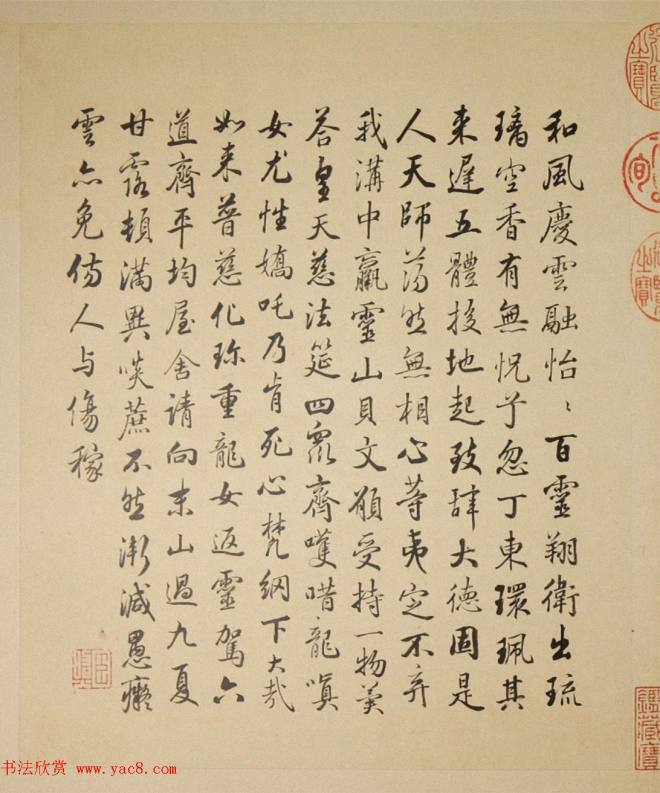 和風慶雲融怡〻百靈翔衛出琉
璃空香有無怳兮忽丁東環珮其
来遲五體投地起致辞大德固是
人天師蕩然無相心等夷定不弃
我溝中羸靈山貝文願受持一物奚
荅皇天慈法筵四眾齊嘆唶龍嗔
女尤性嬌吒乃肯死心梵網下大哉
如来普慈化珍重龍女返靈駕六
道齊平均屋舍請向末山過九夏
甘露頓滿異啖蔗不然漸減愚癡
雲亦免傷人与傷稼
书法欣赏 www.yac8.com